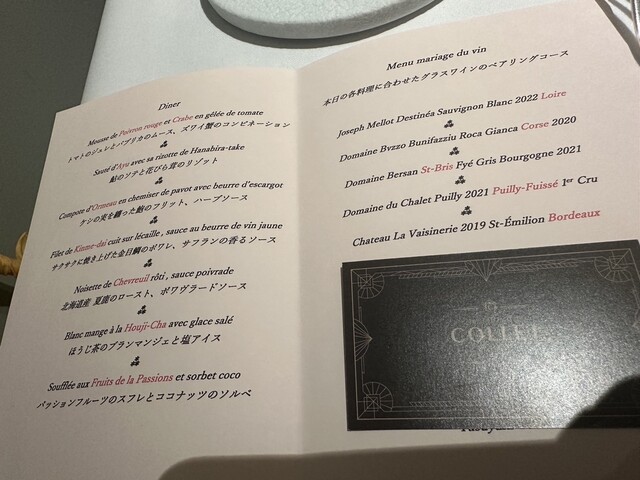 Diner
Mousse de Poivron rouge et Crabe en gelée de tomate
トマトのジュレとパプリカのムース、ズワイ蟹のコンビネーション
Sauté d'Ayu avec sa rizotte de Hanabira-take
鮎のソテと花びら茸のリゾット
Compote d'Ormeau en chemiser de pavot avec beurre d'escargot
ケシの実を纏った鮑のフリット、ハーブソース
Filet de Kinme-dai cuit sur lécaille , sauce au beurre de vin jaune
サクサクに焼き上げた金目鯛のポワレ、サフランの香るソース
Noisette de Chevreuil rôti , sauce poivrade
北海道産 夏鹿のロースト、ポワヴラードソース
Blanc mange à la Houji-Cha avec glace salé
ほうじ茶のブランマンジェと塩アイス
Soufflée aux Fruits de la Passions et sorbet coco
パッションフルーツのスフレとココナッツのソルベ
Menu mariage du vin
本日の各料理に合わせたグラスワインのペアリングコース
Joseph Mellot Destinéa Sauvignon Blanc 2022 Loire
Domaine Bvzzo Bunifazziu Roca Gianca Corse 2020
Domaine Bersan St-Bris Fyé Gris Bourgogne 2021
Domaine du Chalet Puilly 2021 Puilly-Fuissé 1er Cru
Chateau La Vaisinerie 2019 St-Émilion Bordeaux